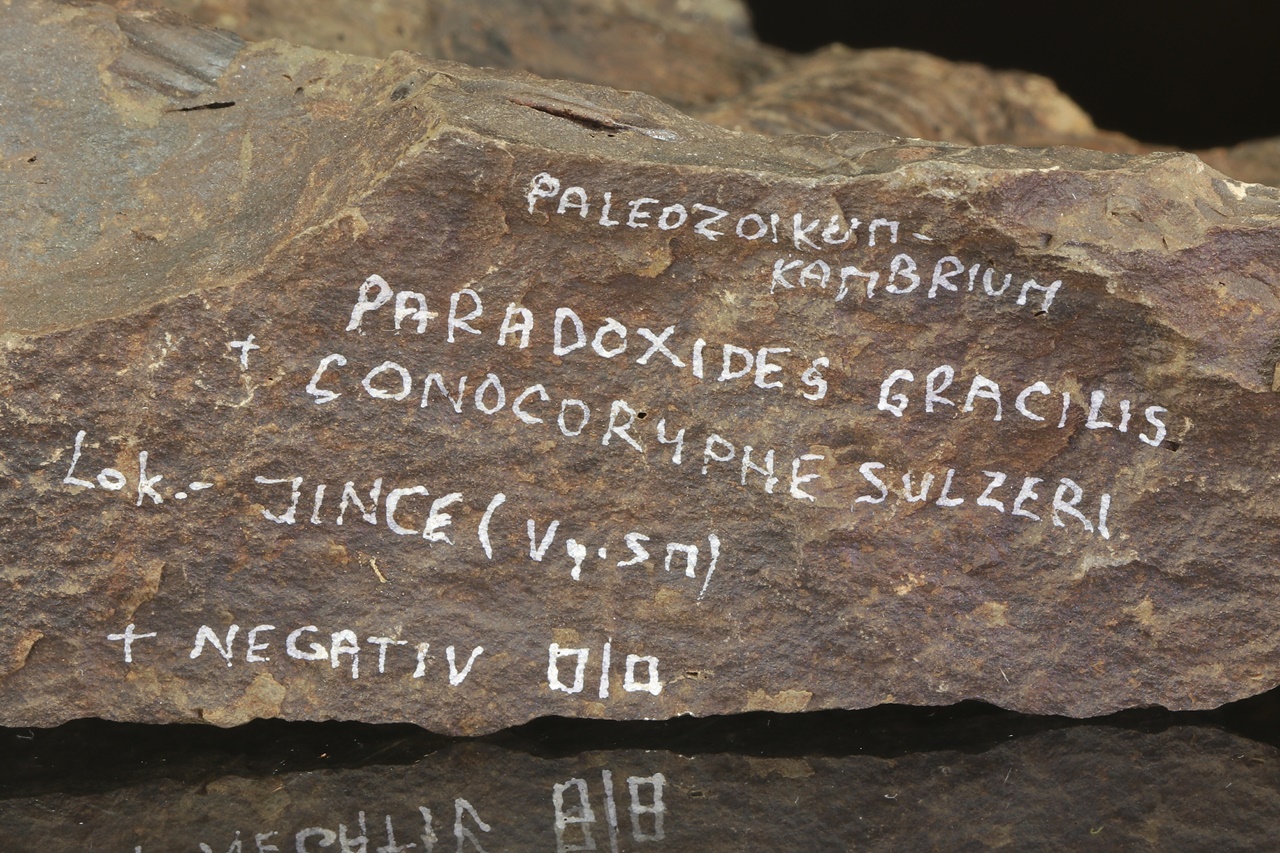 PALEOZOIKUM-
KAMBRIUM
PARADOXIDES GRACILIS
+ CONOCORYPHE SULZERI
Lok.- JINCE (Vy.sm)
+ NEGATIV